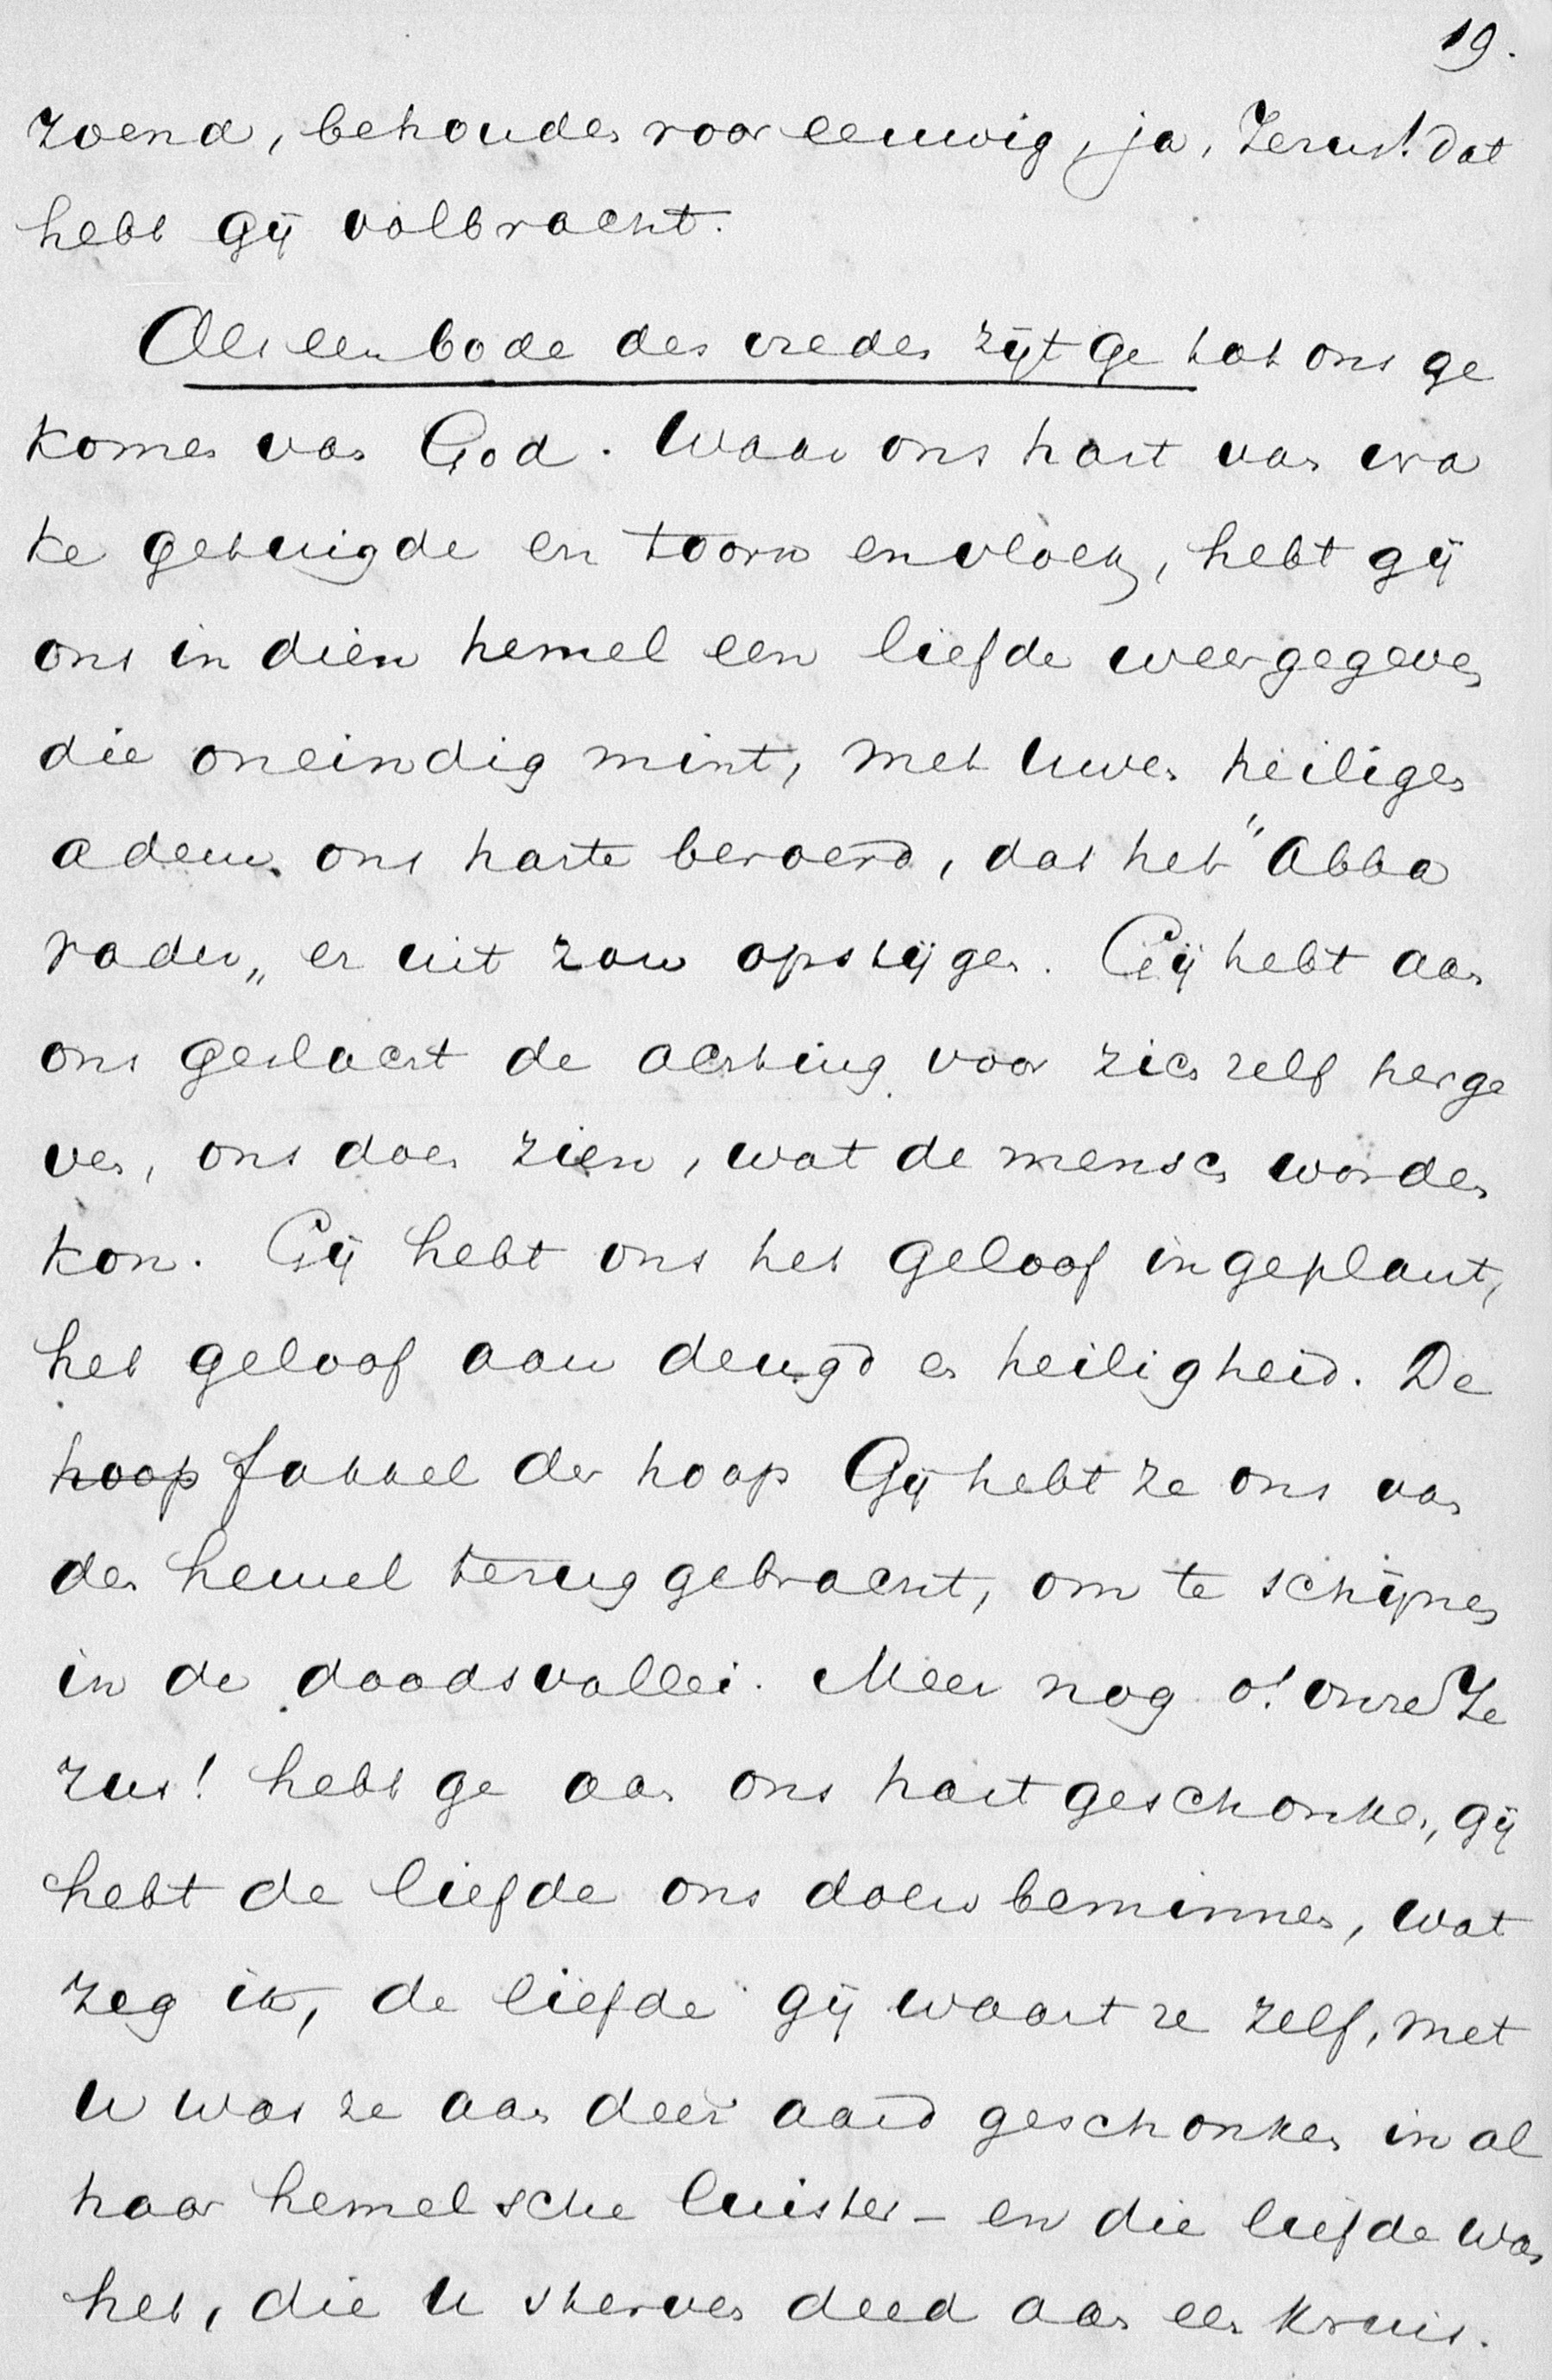 19.
zoend, behouden voor eeuwig, ja, Jezus! dat
hebt Gij volbracht.
Als een bode des vredes zijt Ge tot ons ge
komen van God. Waar ons hart van wra
ke getuigde en toorn en vloek, hebt gij
ons in dien hemel een liefde weergegeven
die oneindig mint, met Uwen heiligen
adem ons harte beroerd, dat het "Abba
Vader„ er uit zou opstijgen. Gij hebt aan
ons geslacht de achting voor zich zelf herge
ven, ons doen zien, wat de mensch worden
kon. Gij hebt ons het geloof ingeplant,
het geloof aan deugd en heiligheid. De
hoop fakkel der hoop Gij hebt ze ons van
den hemel teruggebracht, om te schijnen
in de doodsvallei. Meer nog o! onze Je
zus! hebt ge aan ons hart geschonken, gij
hebt de liefde ons doen beminnen, wat
zeg ik, de liefde gij waart ze zelf, met
U was ze aan deez' aard geschonken in al
haar hemelsche luister – en die liefde was
het, die U sterven deed aan een kruis.